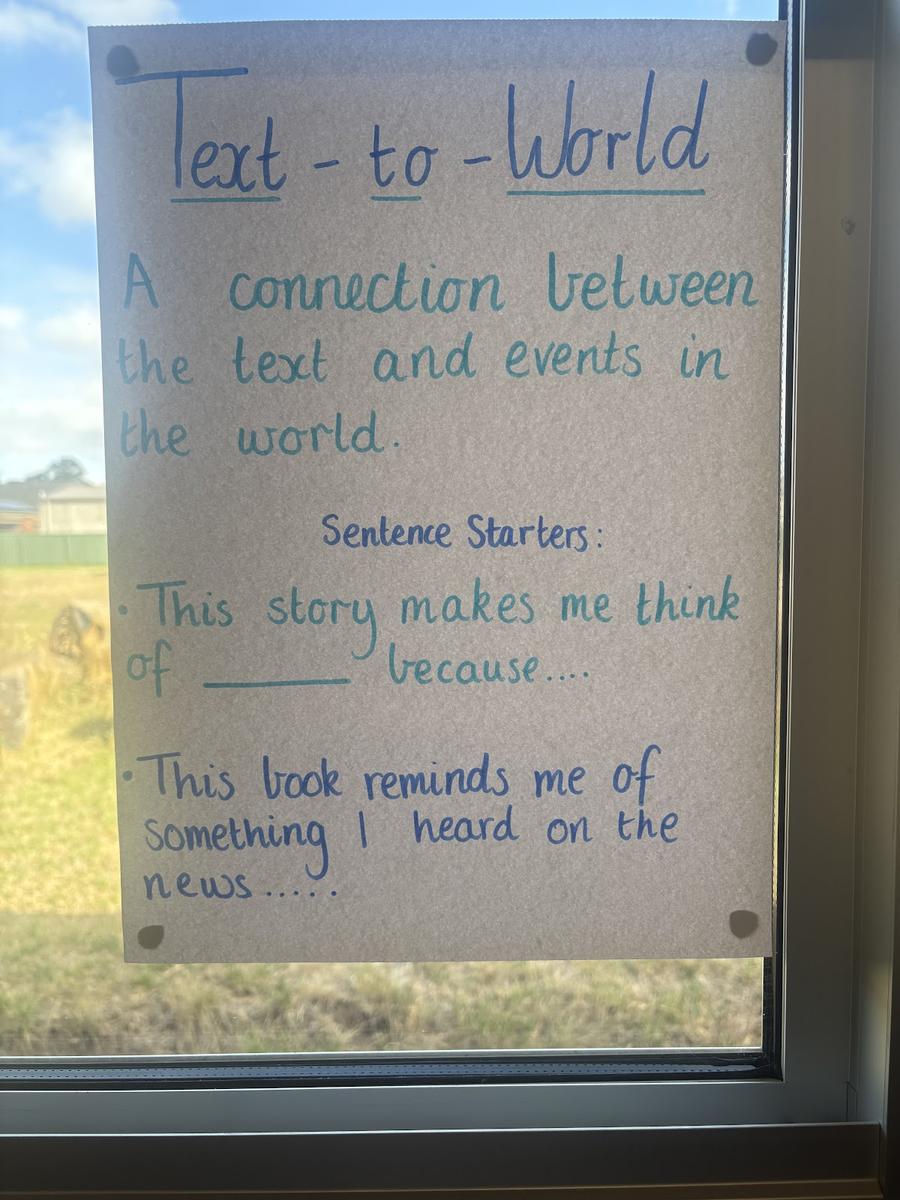 Text - to - World
A connection between
the text and events in
the world.
Sentence Starters:
• This story makes me think
of ______ because....
• This book reminds me of
something I heard on the
news.....